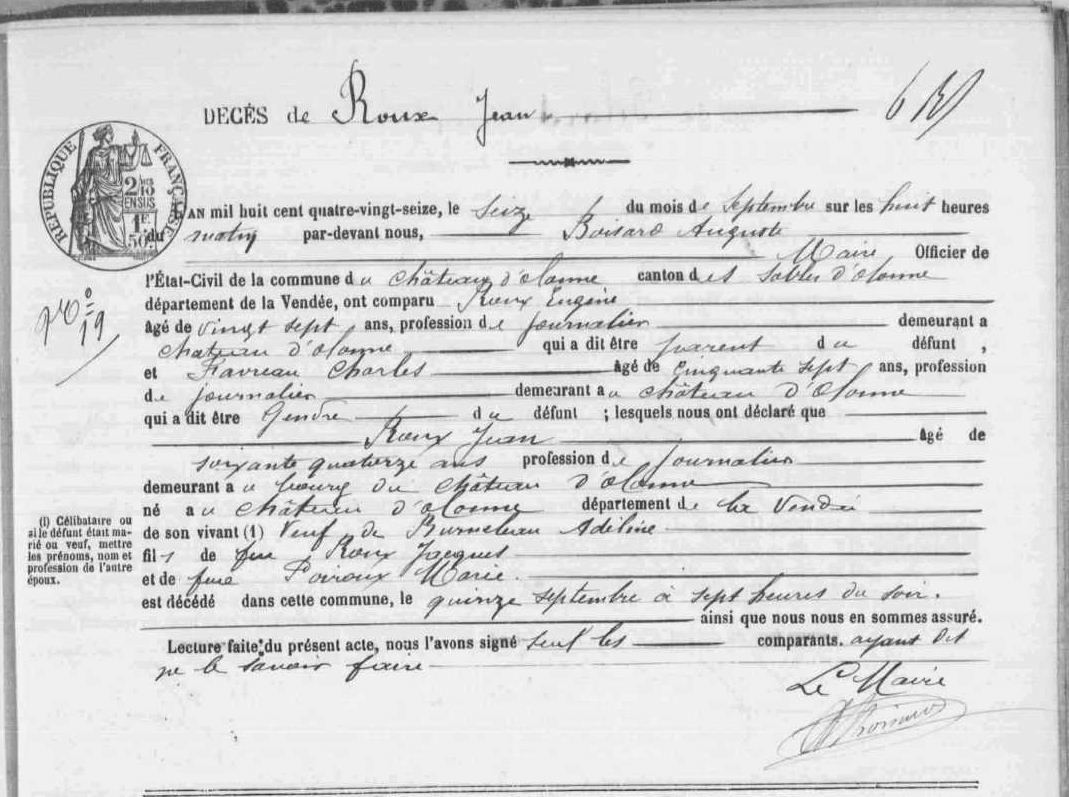 DECÈS de Roux Jean
RÉPUBLIQUE FRANÇAISE
2/10
EN SUS
1F
50c.
AN mil huit cent quatre-vingt-seize, le seize du mois de Septembre sur les huit heures
du matin par-devant nous, Boisard Auguste
Maire Officier de
l'État-Civil de la commune du Château d'olonne canton des Sables d'olonne
département de la Vendée, ont comparu Roux Eugène
âgé de vingt sept ans, profession de journalier demeurant a
chateau d'olonne qui a dit être parent du défunt,
et Favreau Charles âgé de Cinquante sept ans, profession
de journalier demeurant au château d'Olonne
qui a dit être Gendre du défunt ; lesquels nous ont déclaré que
Roux Jean âgé de
soixante quatorze ans profession de journalier
demeurant au bourg du château d'Olonne
né au château d'Olonne département de la Vendée
de son vivant (1) Veuf de Burneleau Adeline
fils de feu Roux Jacques
et de feue Poiroux Marie.
est décédé dans cette commune, le quinze septembre à sept heures du soir.
ainsi que nous nous en sommes assuré.
Lecture faite du présent acte, nous l'avons signé seul les comparants. ayant dit
ne le savoir faire
Le Maire
ABoisard
No 19
(1) Célibataire ou
si le défunt était ma-
rié ou veuf, mettre
les prénoms, nom et
profession de l'autre
époux.